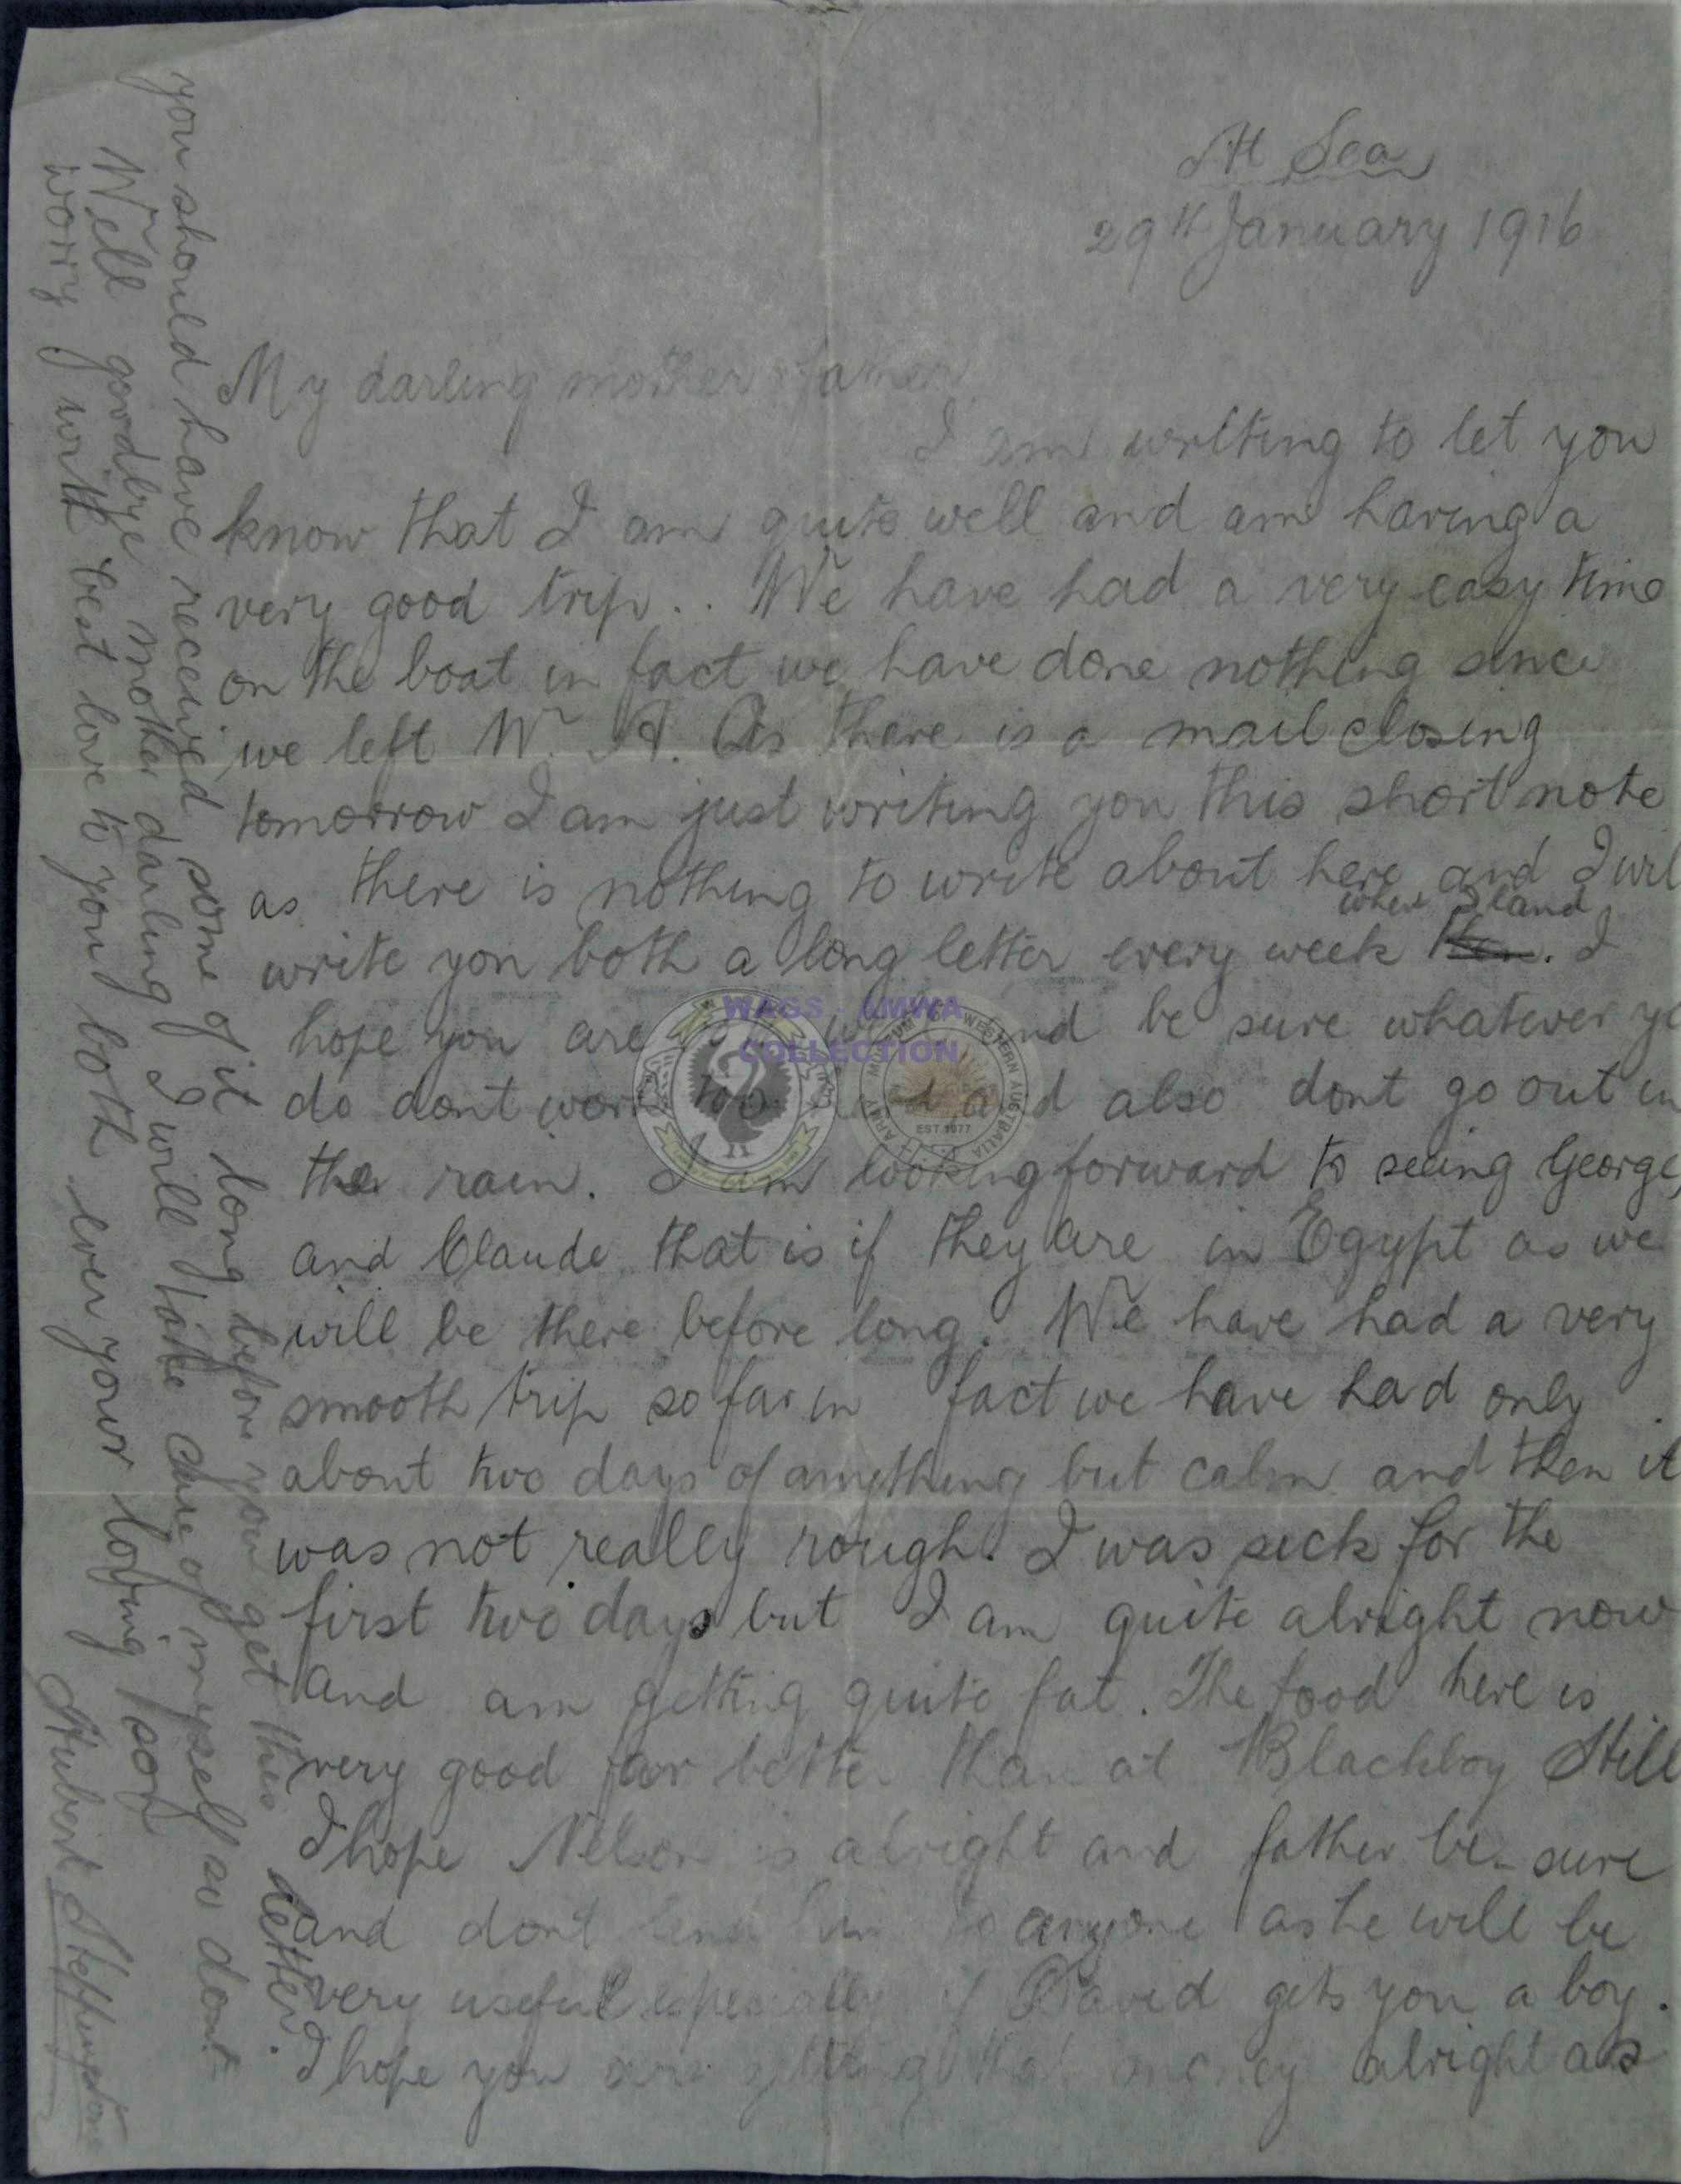 At Sea
29th January 1916
My darling mother & father
I am writing to let you
know that I am quite well and am having a
very good trip.. We have had a very easy time
on the boat in fact we have done nothing since
we left W. A. As there is a mail closing
tomorrow I am just writing you this short note
as there is nothing to write about here and I wil
when I land
write you both a long letter every week . I
hope you are well and be sure whatever yo
do dont work too hard and also dont go out in
the rain. I am looking forward to seeing George,
and Claude that is if they are in Egypt as we
will be there before long. We have had a very
smooth trip so far in fact we have had only
about two days of anything but calm and then it
was not really rough. I was sick for the
first two days but I am quite alright now
and am getting quite fat. The food here is
very good far better than at Blackboy Hill
I hope Nelson is alright and father be sure
and dont lend him to anyone as he will be
very useful especially if David gets you a boy.
I hope you are getting that money alright as
you should have received some of it long before you get this letter.
Well goodbye mother darling I will take care of myself so dont
worry. With best love to you both. ever your loving son
Hubert
WAGS AMWA
COLLECTION
ARMY MUSEUM OF WESTERN AUSTRALIA
EST. 1977